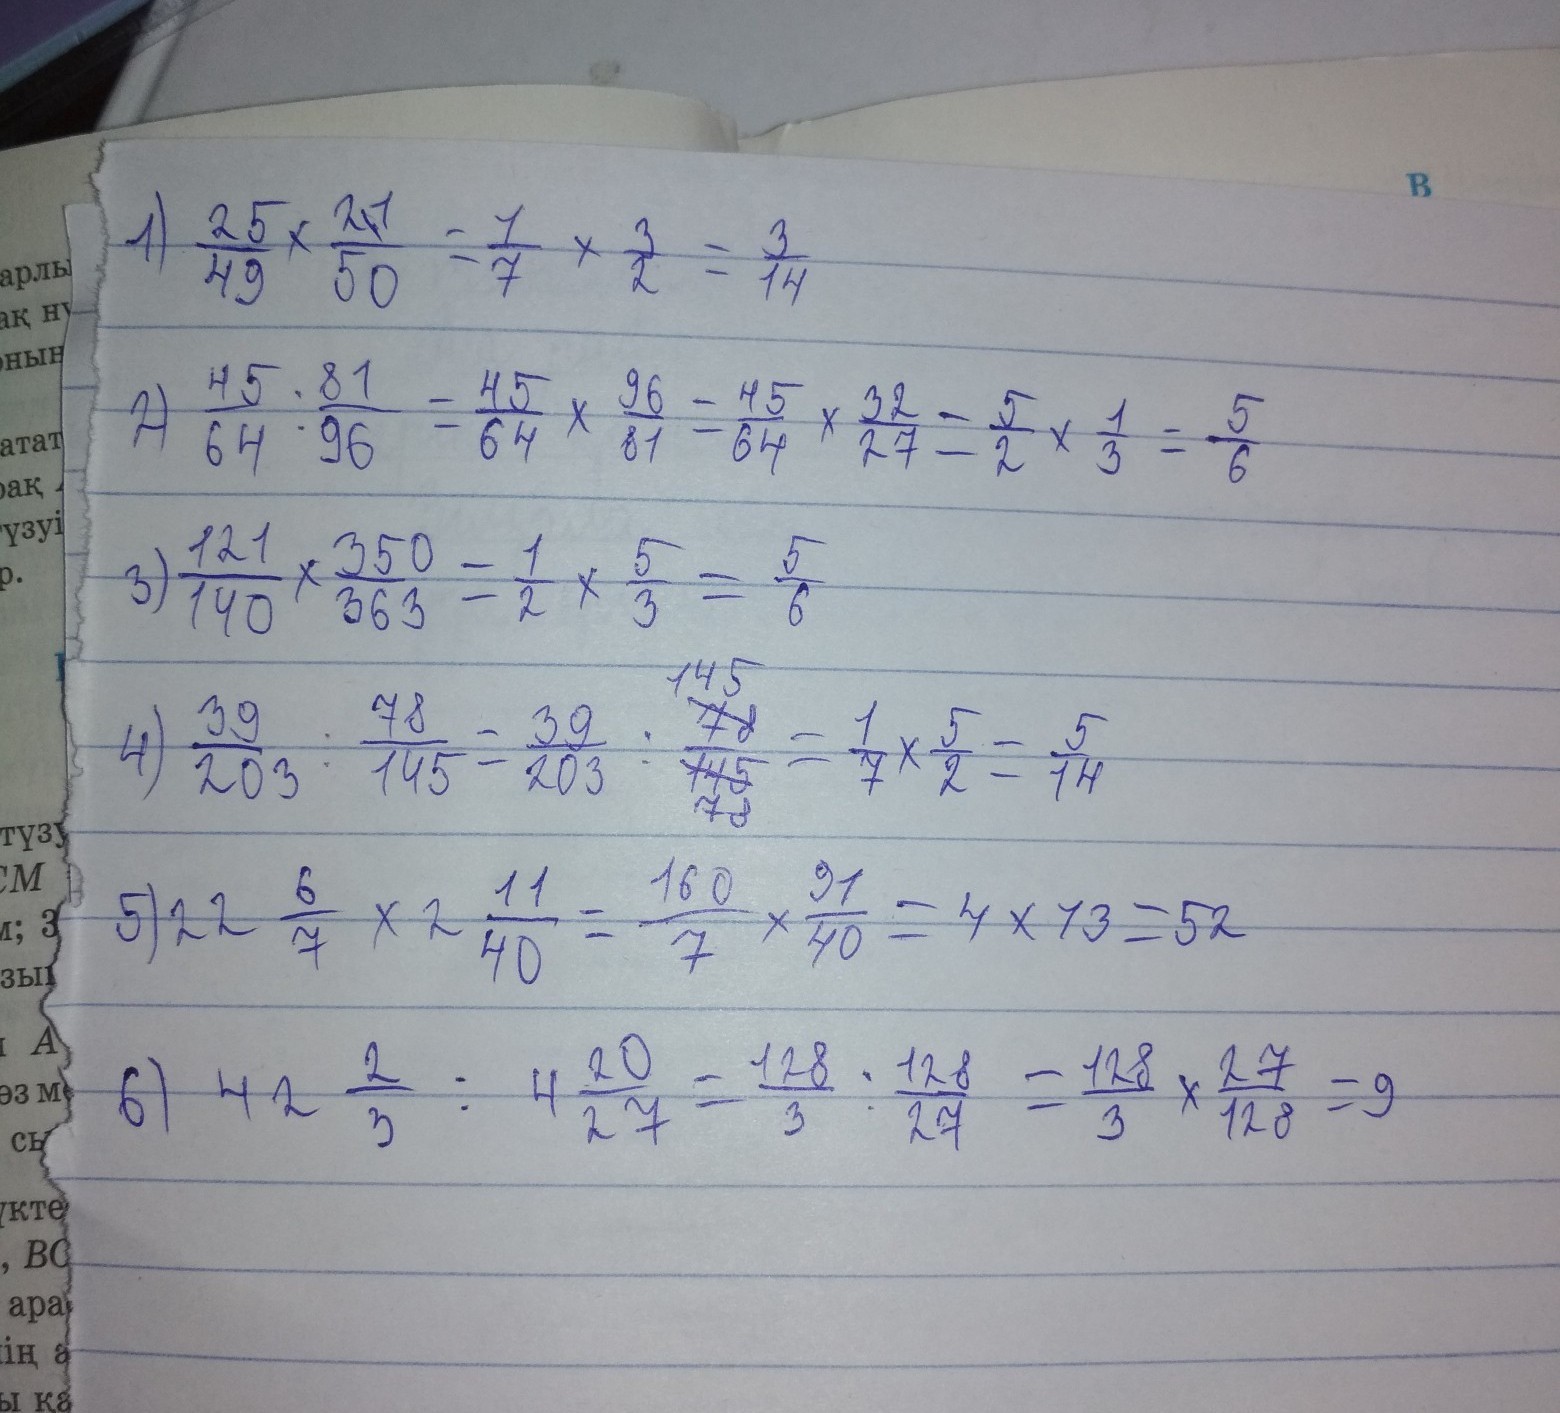 В
арлы
ақ
оның
атат
рақ
түзуі
р.
түзу
СМ
м; 3
зын
А
өз м
сы
үкте
, ВС
ара
ің а
ы қа
1) 25/49 × 21/50 = 1/7 × 3/2 = 3/14
2) 45/64 : 81/96 = 45/64 × 96/81 = 45/64 × 32/27 = 5/2 × 1/3 = 5/6
3) 121/140 × 350/363 = 1/2 × 5/3 = 5/6
4) 39/203 : 78/145 = 39/203 : 145/78 = 1/7 × 5/2 = 5/14
5) 22 6/7 × 2 11/40 = 160/7 × 91/40 = 4 × 13 = 52
6) 42 2/3 : 4 20/27 = 128/3 : 128/27 = 128/3 × 27/128 = 9